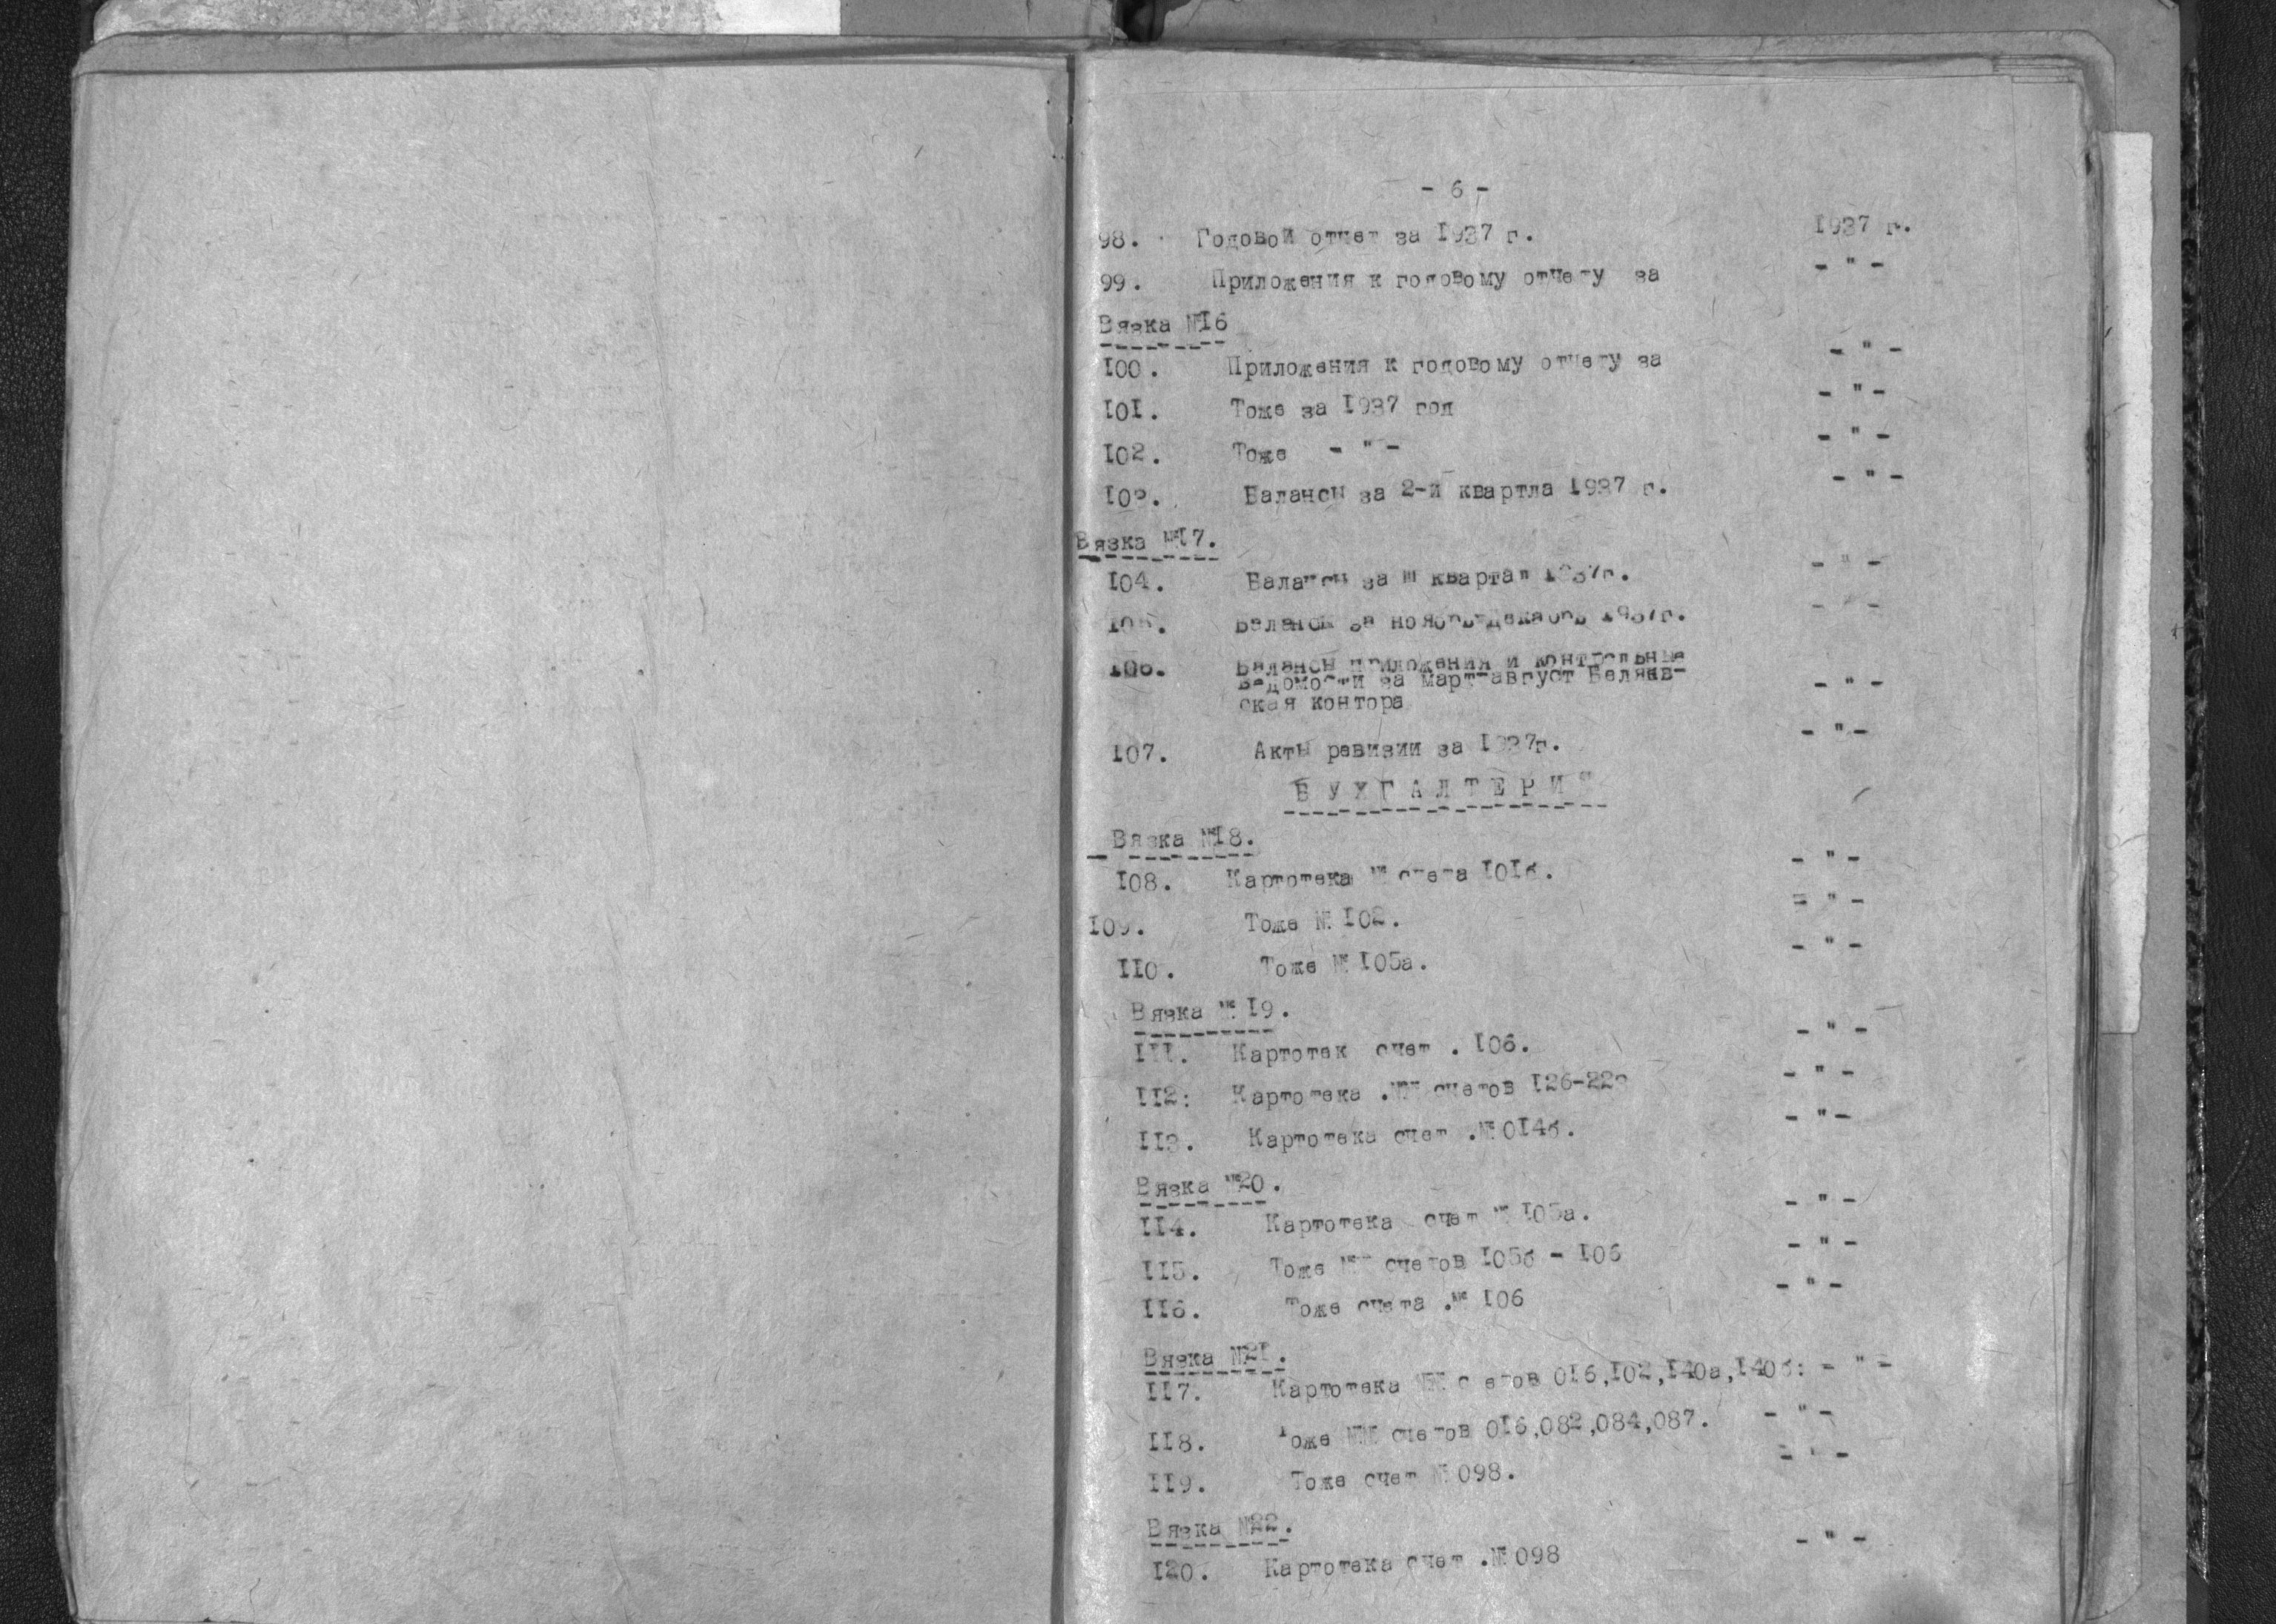 - 6 -
98. Годовой отчет за 1937 г. 1937 г.
99. Приложения к годовому отчету за - " -
Вязка №16
100. Приложения к годовому отчету за - " -
101. Тоже за 1937 год - " -
102. Тоже - " - - " -
103. Балансы за 2-й квартла 1937 г. - " -
Вязка №17.
104. Балансы за III квартал 1937г. - " -
105. Балансы за ноябрь-декабрь 1937г. - " -
106. Балансы приложения и контрольные
ведомости за март-август Беляев-
ская контора - " -
107. Акты ревизии за 1937г. - " -
БУХГАЛТЕРИЯ
Вязка №18.
108. Картотека № счета 101б. - " -
109. Тоже № 102. - " -
110. Тоже № 105а. - " -
Вязка № 19.
111. Картотек счет . 106. - " -
112: Картотека .№№ счетов 126- - " -
113. Картотека счет .№ 014б. - " -
Вязка №20.
114. Картотека счет № 105а. - " -
115. Тоже №№ счетов 105б - 106 - " -
116. Тоже счета .№ 106 - " -
Вязка №21.
117. Картотека №№ счетов 016,102,140а,140б: - " -
118. Тоже №№ счетов 016,082,084,087. - " -
119. Тоже счет № 098. - " -
Вязка №22.
120. Картотека счет .№ 098 - " -